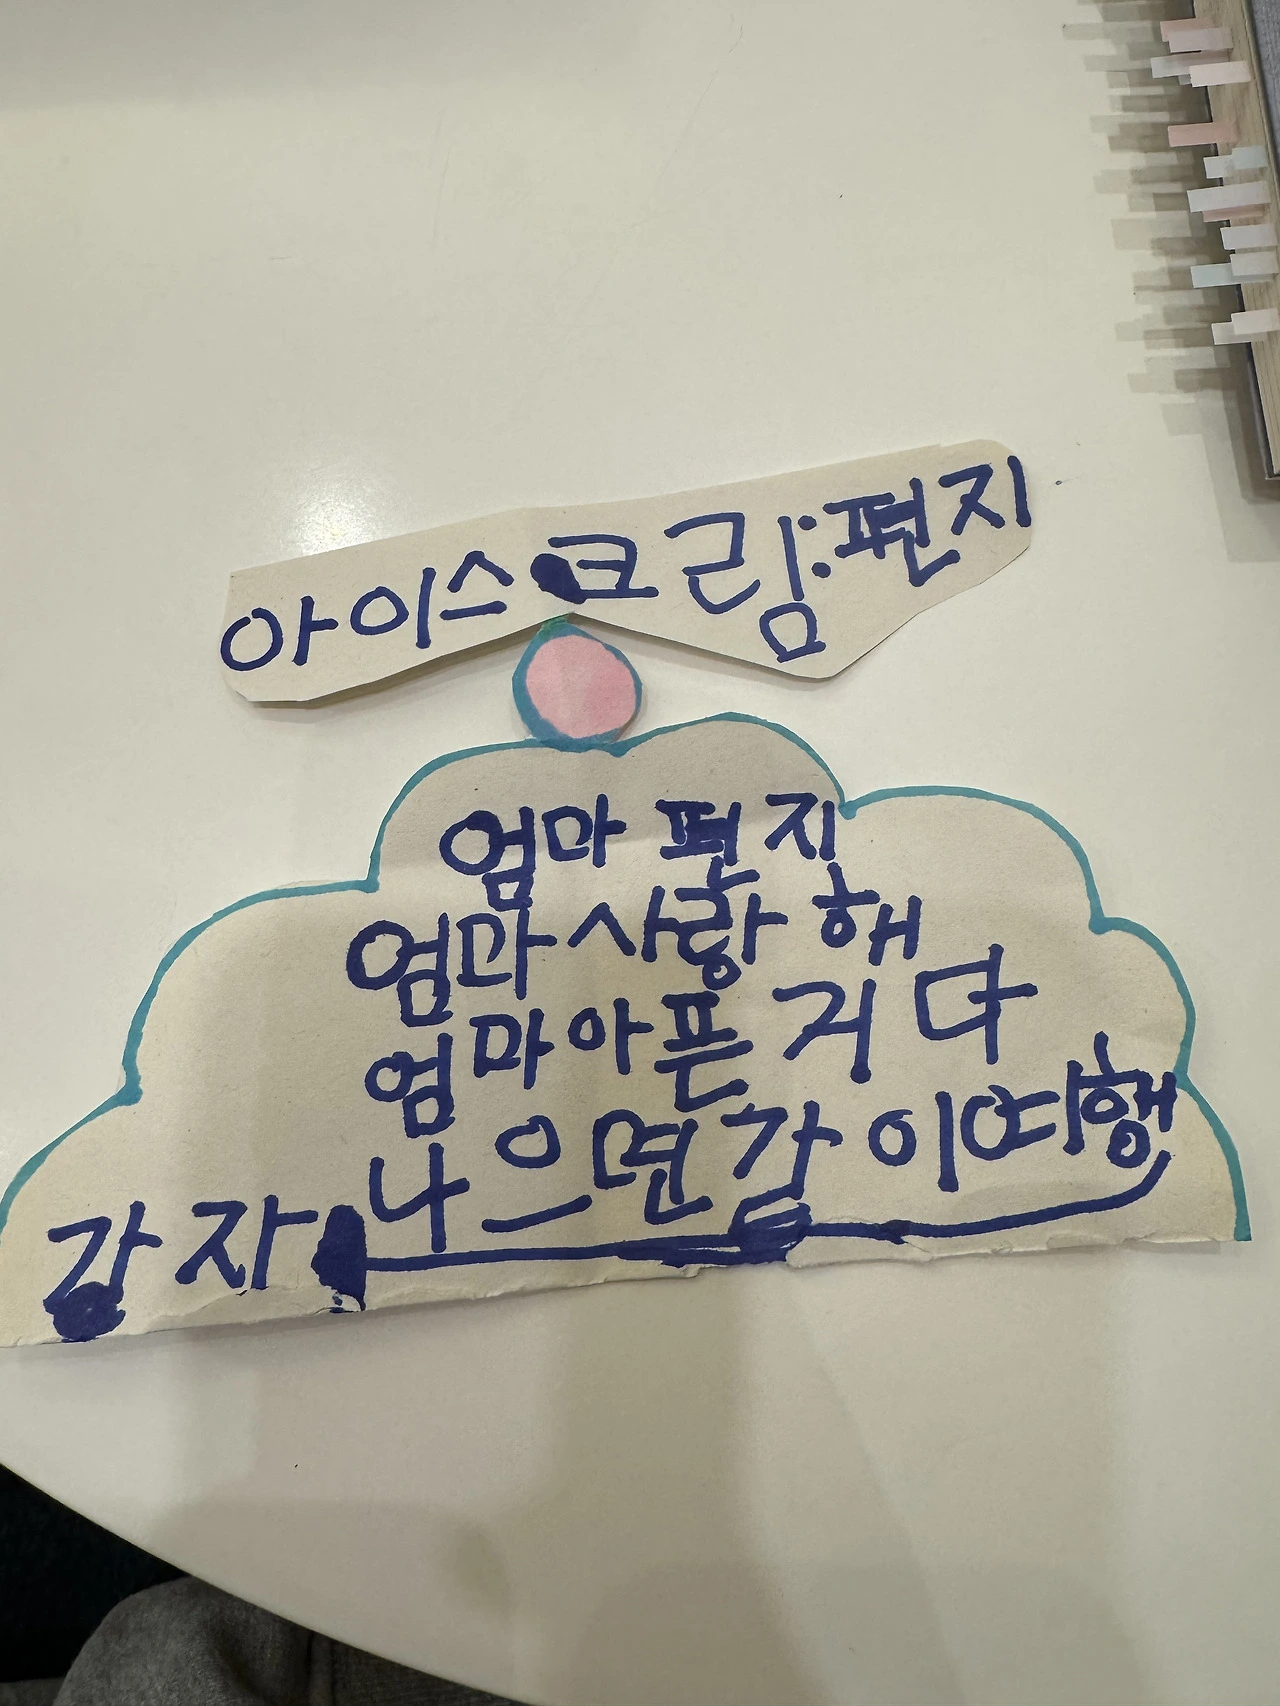 아이스크림:편지
엄마 편지
엄마 사랑해
엄마 아픈 거 다
나으면 같이 여행
가자